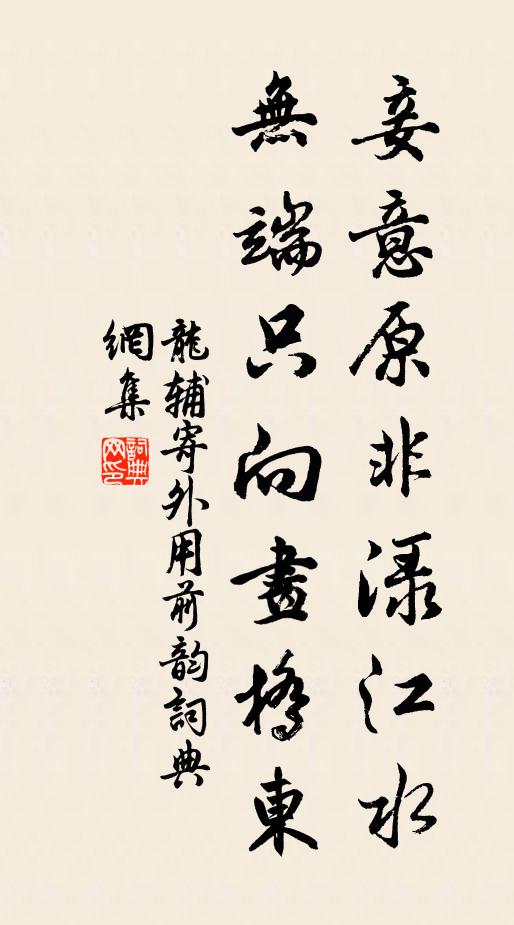 妾意原非渌江水
無端只向畫橋東
龍輔寄外用前韵詞典
網集
詞典
网印